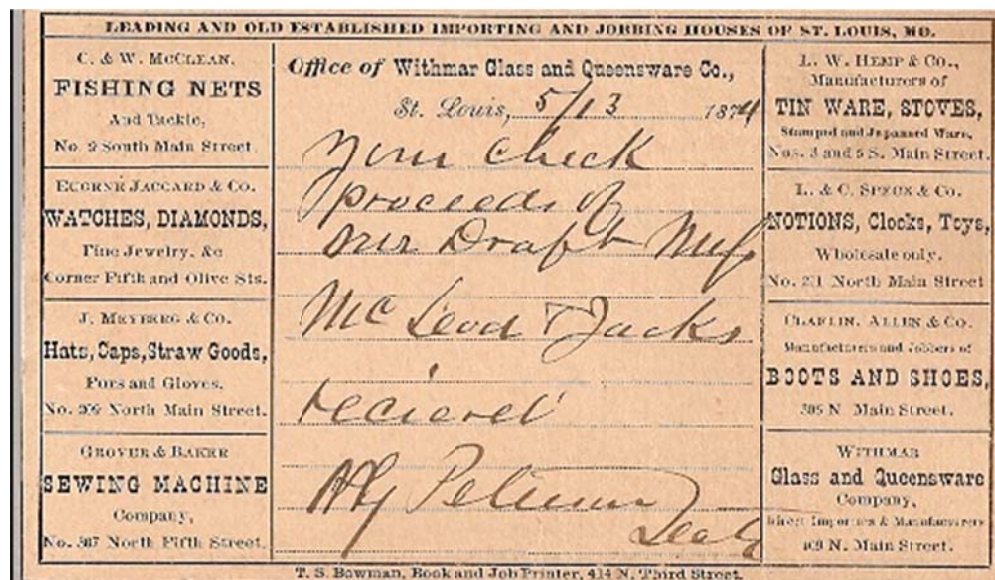 LEADING AND OLD ESTABLISHED IMPORTING AND JOBBING HOUSES OF ST. LOUIS, MO.
C. & W. McCLEAN.
FISHING NETS
And Tackle,
No. 9 South Main Street.
EUGENE JACCARD & CO.
WATCHES, DIAMONDS,
Fine Jewelry, &c
Corner Fifth and Olive Sts.
J. MEYBERG & CO.
Hats, Caps, Straw Goods,
Furs and Gloves.
North Main Street.
GROVER & BAKER
SEWING MACHINE
Company,
No. 307 North Fifth Street.
Office of Withmar Glass and Queensware Co.,
St. Louis, 5/13 1874
Your check
proceeds of
our Draft
McLeod & Jacks
recieved
L. W. HEMP & CO.,
Manufacturers of
TIN WARE, STOVES,
Stamped and Japanned Ware,
Nos. 3 and 5 S. Main Street.
L. & C. SPECK & CO.
NOTIONS, Clocks, Toys,
Wholesale only.
No. 211 North Main Street
CLAFLIN, ALLEN & CO.
Manufacturers and Jobbers of
BOOTS AND SHOES,
N Main Street.
WITHMAR
Glass and Queensware
Company,
Direct Importers & Manufacturers
409 N. Main Street.
T. S. Bowman, Book and Job Printer, 414 N. Third Street.